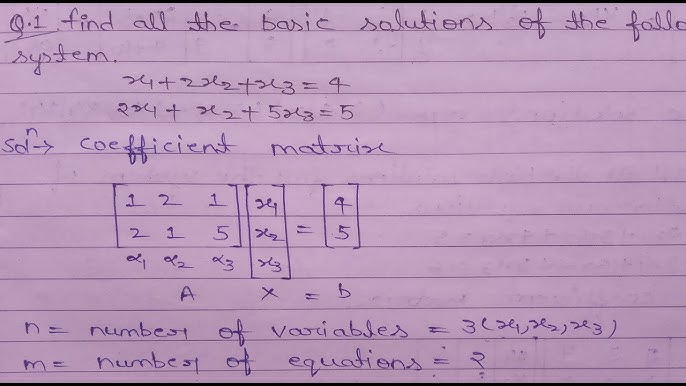 Q.1 find all the basic solutions of the follo
system.
x1 + 2x2 + x3 = 4
2x1 + x2 + 5x3 = 5
Solⁿ→ coefficient matrix
[1 2 1] [x1] = [4]
[2 1 5] [x2] [5]
α1 α2 α3 [x3]
A X = b
n = number of variables = 3(x1, x2, x3)
m = number of equations = 2